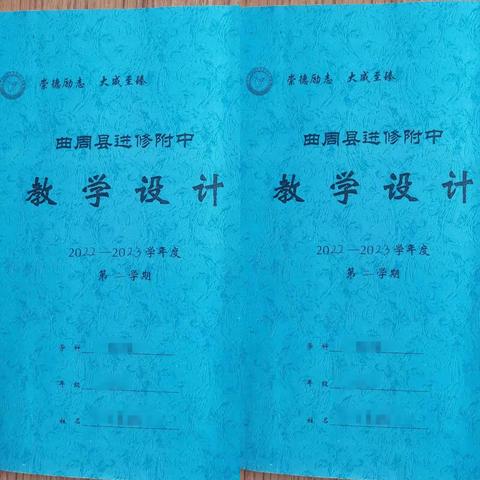 崇德励志 大成至臻
曲周县进修附中
教学设计
2022—2023学年度
第二学期
学科
年级
姓名
崇德励志 大成至臻
曲周县进修附中
教学设计
2022—2023学年度
第二学期
学科
年级
姓名